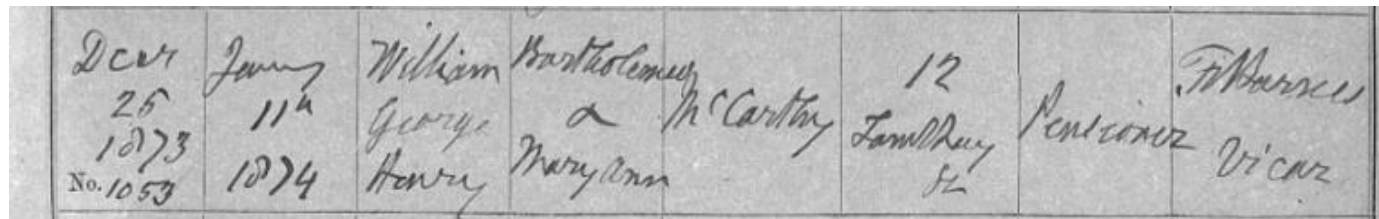 Decr
25
1873
No. 1053
Jany
11th
1874
William
George
Henry
Bartholomew
&
Mary Ann
McCarthy
12
St
Pensioner
Vicar